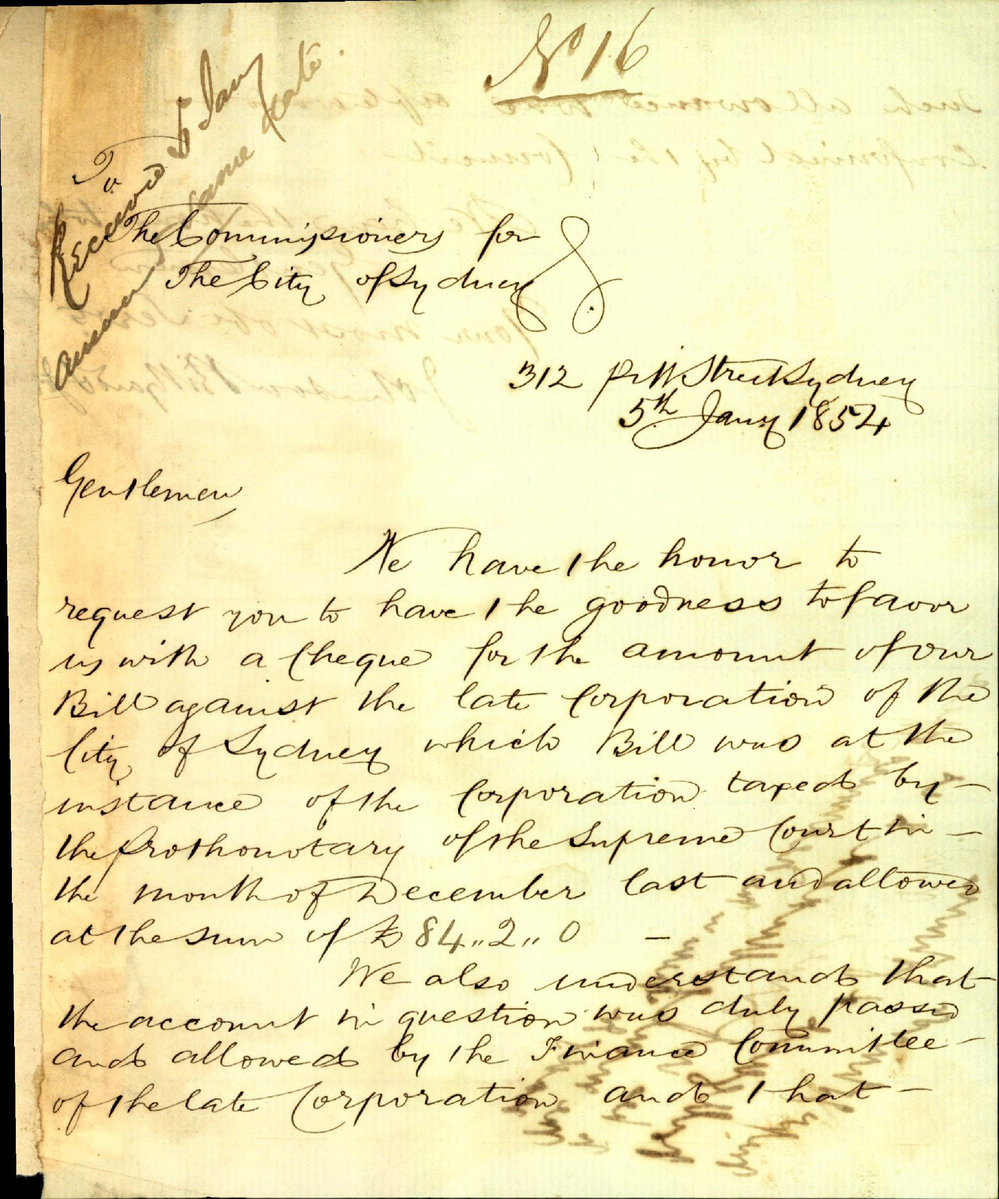 No 16
Received 5 Jany
Answered same date.
To
The Commissioners for
The City of Sydney
312 Pitt Street Sydney
5th Jany 1854
Gentlemen
We have the honor to
request you to have the goodness to favor
us with a Cheque for the amount of our
Bill against the late Corporation of the
City of Sydney which Bill was at the
instance of the Corporation taxed by -
the Prothonotary of the Supreme Court in -
the month of December last and allowed
at the sum of £84..2..0 -
We also understand that
the account in question was duly passed
and allowed by the Finance Committee -
of the late Corporation and that -